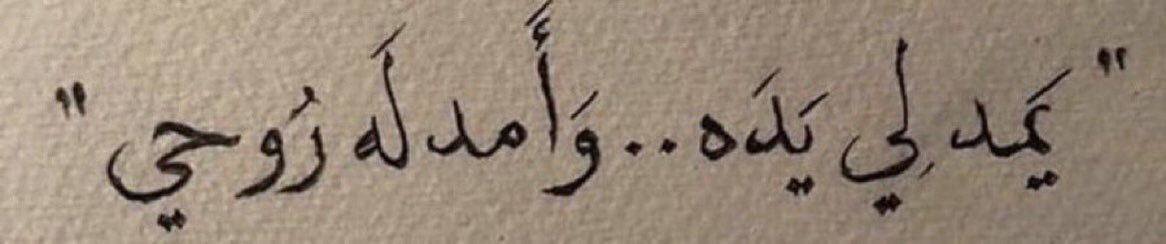 "يَمد لِي يَدَه..وَأَمد لَه رُوحي"